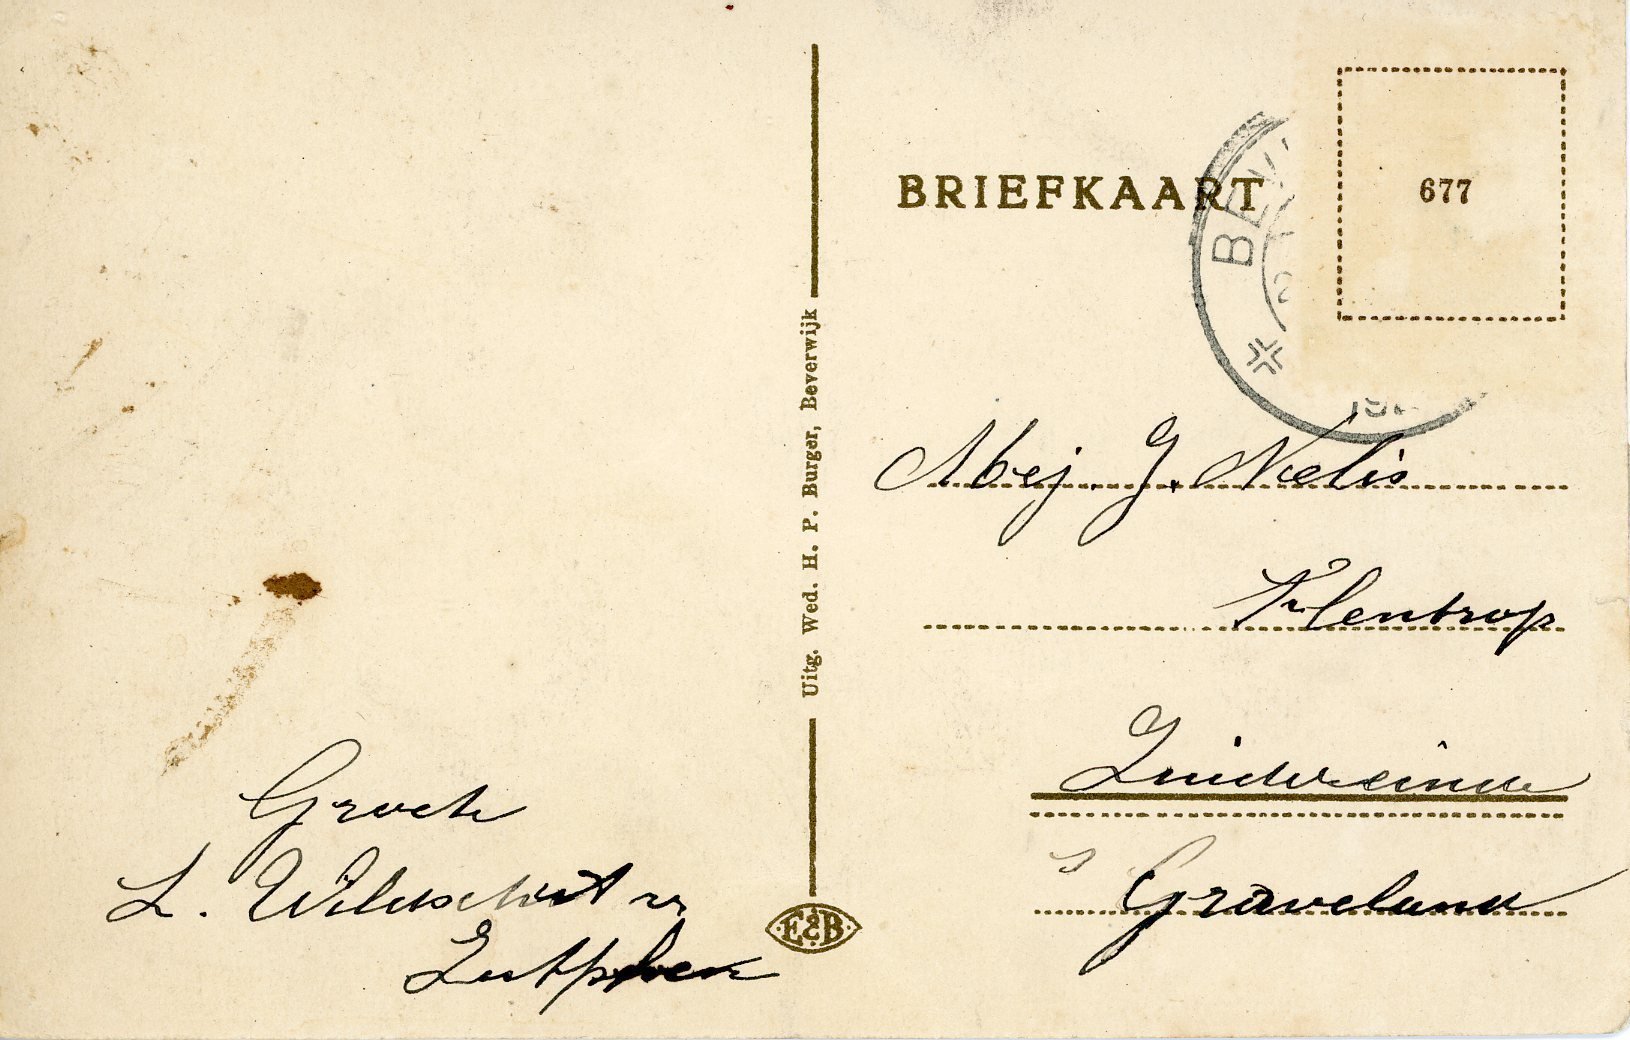 BRIEFKAART
677
BEV
Uitg. Wed. H. P. Burger, Beverwijk
E&B
Mej. J. Nelis
Klentrop
Zuidereinde
's Graveland
Groet
L. Wildschut
Zutphen